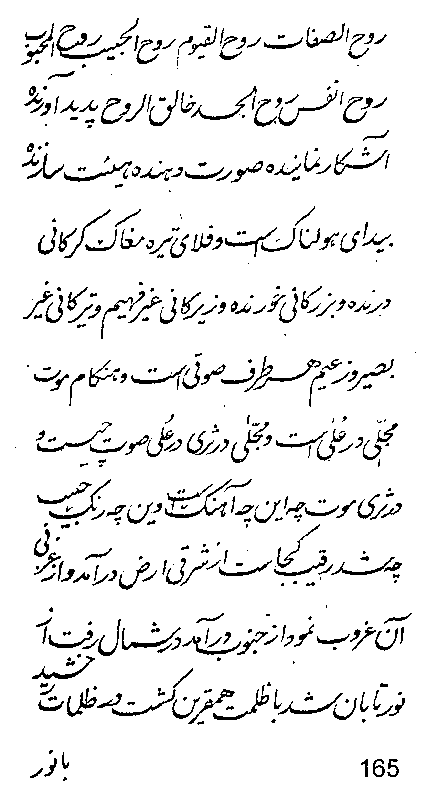 روح الصفات روح القیوم روح الحبیب روح المحبوب
روح النفس روح الجسد خالق الروح پدید آورنده
آشکار نماینده صورت دهنده هیئت سازنده
بیدای هولناک است و فلای تیره مغاک کرکانی
درنده و بزرکانی خورنده و زیرکانی غیر فهیم و تیرکانی غیر
بصیر و زعیم هر طرف صوتی است و هنکام موت
مجلّی در عُلی است و مجلّی در ثری در عُلی صوت چیست و
در ثری موت چه این چه آهنک است وین چه رنک حبیب
چه شد رقیب کجاست از شرقی ارض در آمد و از غربی
آن غروب نمود از جنوب در آمد در شمال رفت از
نور تابان شد با ظلمت همقرین کشت در ظلمات رخشید
با نور
165